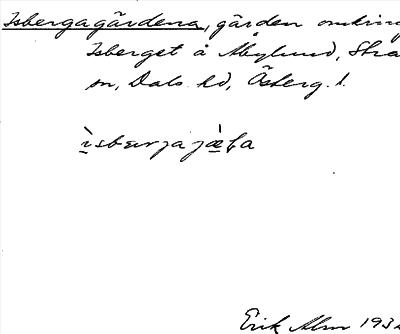 Isbergagårdena, gården omkring
Isberget å Åbylund, Stra
sn, Dals hd, Österg. l.
ìsbærjajæ̀ɽa
Erik Alm 193